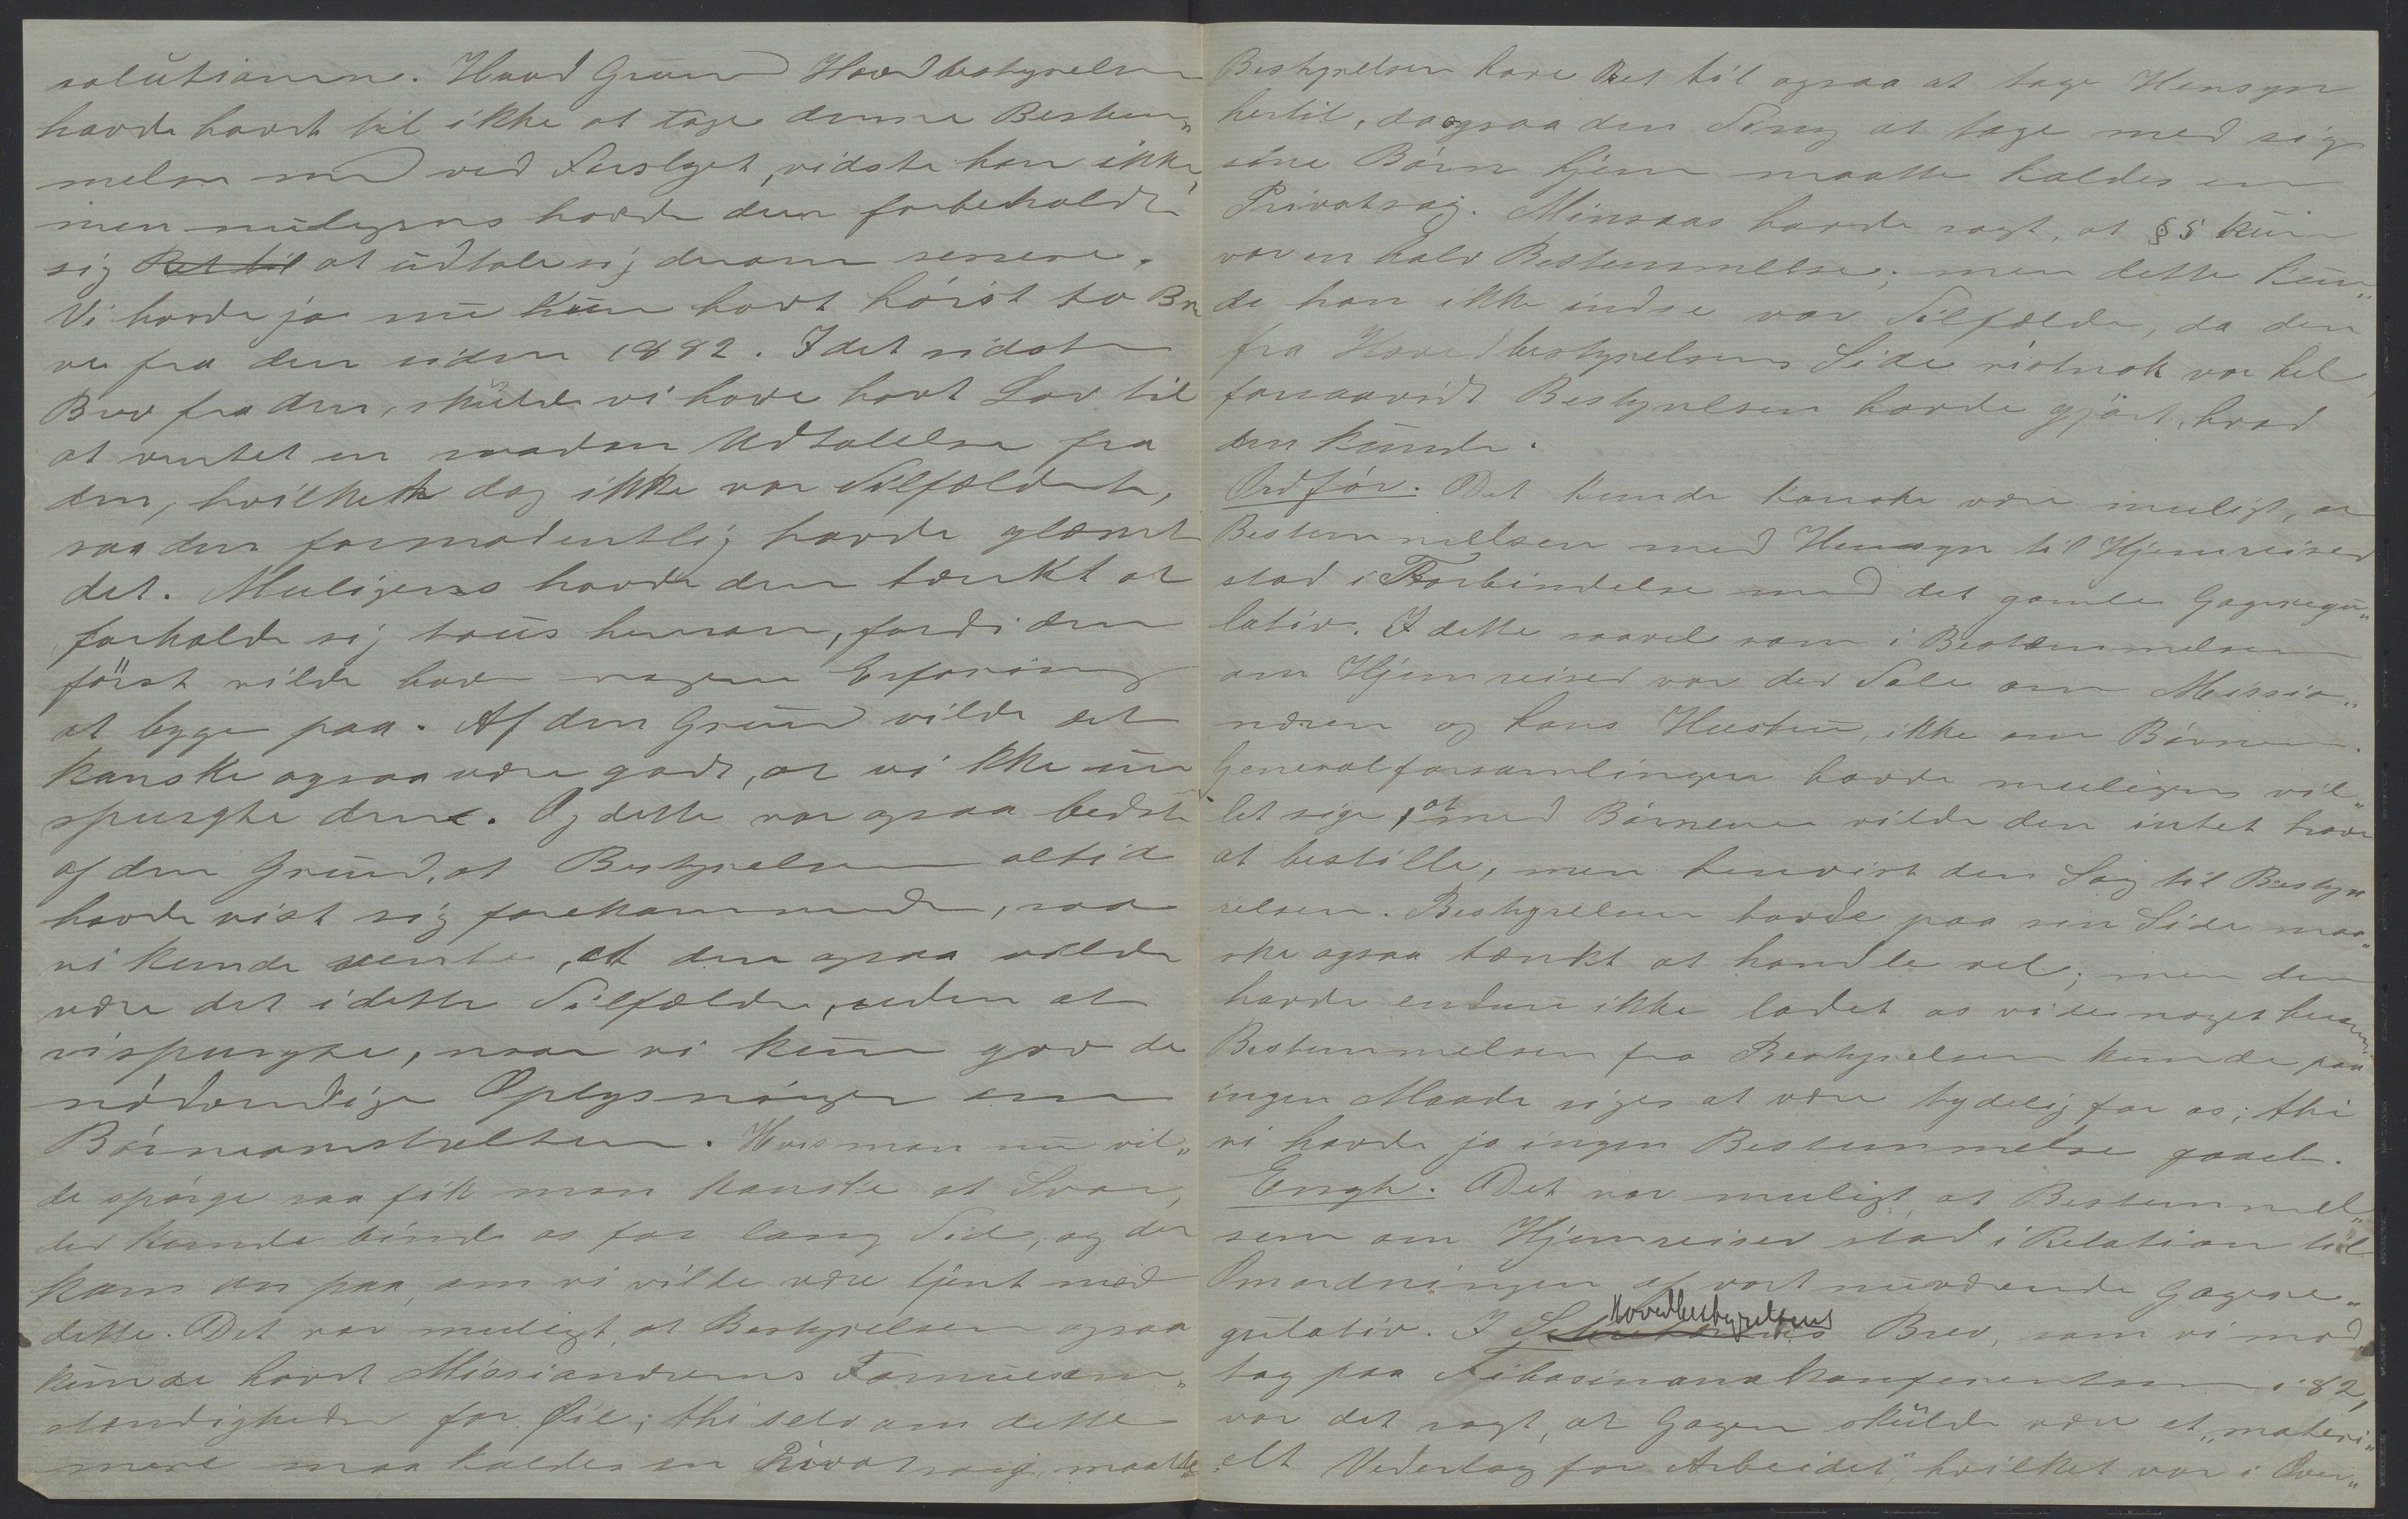 solutionerne. Hvad Grund Hovedbestyrelsen
havde havt til ikke at tage denne Bestem„
melse med ved Forslaget, vidste han ikke,
men muligens havde den forbeholdt
sig Ret til at udtale sig derom senere.
Vi havde jo nu kun havt høist to Bre
ve fra den siden 1892. I det sidste
Brev fra den, skulde vi have havt Lov til
at ventet en saadan Udtalelse fra
den, hvilket dog ikke var Tilfældet,
saa den formodentlig havde glemt
det. Muligens havde den tænkt at
forholde sig taus herom, fordi den
først vilde have nogen Erfaring
at bygge paa. Af den Grund vilde det
kanske ogsaa være godt, at vi ikke nu
spurgte den. Og dette var ogsaa bedst
af den Grund, at Bestyrelsen altid
havde vist sig forekommende, saa
vi kunde vente, at den ogsaa vilde
være det i dette Tilfælde, uden at
vi spurgte, naar vi kun gav de
nødvendige Oplysninger om
Børneantallet. Hvis man nu vil„
de spørge saa fik man kanske et Svar,
der kunde binde os for lang Tid, og det
kom an paa, om vi vilde være tjent med
dette. Det var muligt, at Bestyrelsen ogsaa
kunde havt Missionærernes Formuesom„
stændigheder for Øie; thi selv om dette
mere maa kaldes en Privatsag, maatte
Bestyrelsen have Ret til ogsaa at tage Hensyn
hertil, da ogsaa den Ting at tage med sig
sine Børn hjem maatte kaldes en
Privatsag. Minsaas havde sagt, at §5 kun
var en halv Bestemmelse; men dette kun„
de han ikke indse var Tilfælde, da den
fra Hovedbestyrelsens Side vistnok var hel,
forsaavidt Bestyrelsen havde gjort, hvad
den kunde.
Ordfør. Det kunde kanske være muligt, at
Bestemmelsen med Hensyn til Hjemreiser
stod i Forbindelse med det gamle Gageregu„
lativ. I dette saavel som i Bestemmelsen
om Hjemreiser var der Tale om Missio„
næren og hans Hustru, ikke om Børnene.
Generalforsamlingen havde muligens vil„
let sige, at med Børnene vilde den intet have
at bestille, men henvist den Sag til Besty„
relsen. Bestyrelsen havde paa sin Side maa„
ske ogsaa tænkt at handle vel; men den
havde endnu ikke ladet os vide noget herom.
Bestemmelsen fra Bestyrelsen kunde paa
ingen Maade siges at være tydelig for os; thi
vi havde jo ingen Bestemmelse faaet.
Engh. Det var muligt, at Bestemmel„
sen om Hjemreiser stod i Relation til
Omordningen af vort nuværende Gagere„
gulativ. I Hovedbestyrelsens Brev, som vi mod
tog paa Fihasinanakonferentsen i 82,
var det sagt, at Gagen skulde være et „materi„
elt Vederlag for Arbeidet“, hvilket var i Over„